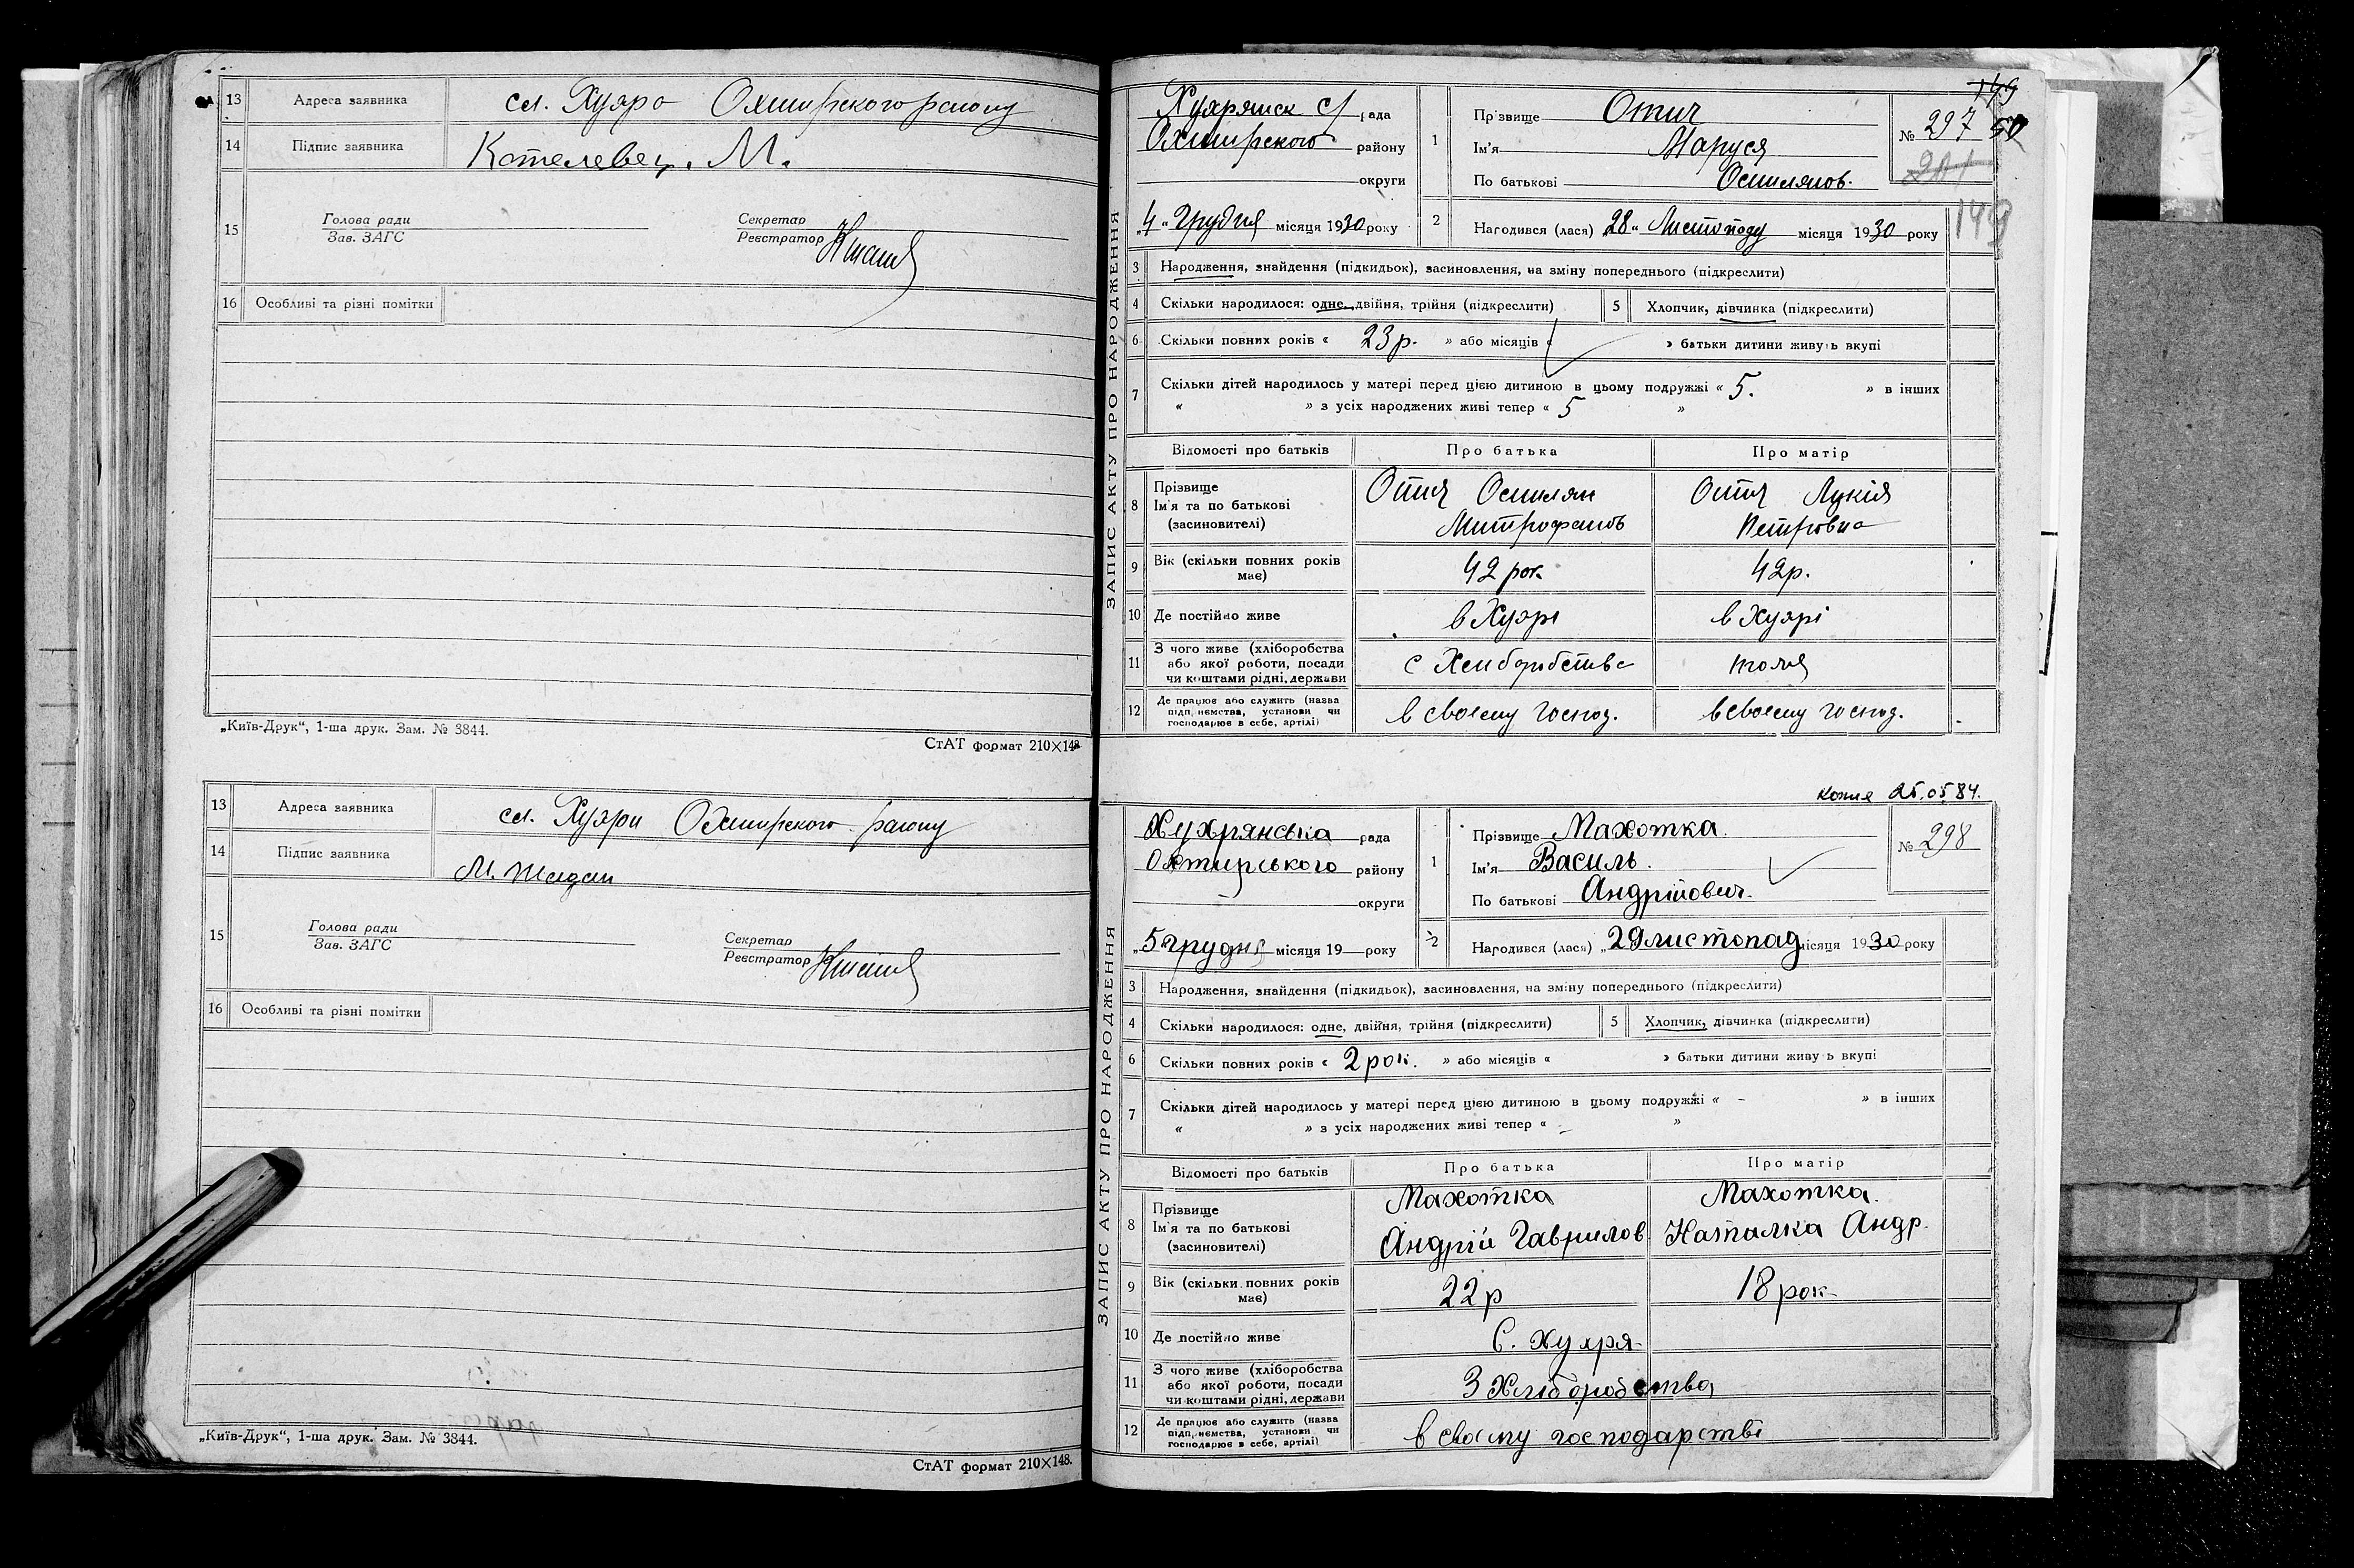 13 Адреса заявника сл. Хухра Охтирского району
14 Підпис заявника Котелевец. М.
15 Голова ради
Зав. ЗАГС
Секретар
Реєстратор
16 Особливі та різні помітки
„Київ-Друк“, 1-ша друк. Зам. № 3844.
СтАТ формат 210×148
13 Адреса заявника сл. Хухри Охтирского району
14 Підпис заявника М. Шадан
15 Голова ради
Зав. ЗАГС
Секретар
Реєстратор
16 Особливі та різні помітки
„Київ-Друк“, 1-ша друк. Зам. № 3844.
СтАТ формат 210×148.
ЗАПИС АКТУ ПРО НАРОДЖЕННЯ
149
Хухрянск с/ рада
Охтирского району
округи
„4“ Грудня місяця 1930 року
1 Прізвище Отич
Ім'я Маруся
По батькові Омилянов.
№ 297 50
201
149
2 Народився (лася) „28“ Листопаду місяця 1930 року
3 Народження, знайдення (підкидьок), засиновлення, на зміну попереднього (підкреслити)
4 Скільки народилося: одне, двійня, трійня (підкреслити) 5 Хлопчик, дівчинка (підкреслити)
6 Скільки повних років « 23 р. » або місяців « » батьки дитини живуть вкупі
7 Скільки дітей народилось у матері перед цією дитиною в цьому подружжі « 5. » в інших
« » з усіх народжених живі тепер « 5 »
Відомості про батьків Про батька Про матір
8 Прізвище
Ім'я та по батькові
(засиновителі)
Отич Омилян
Митрофанов
Отич Лукія
Петровна
9 Вік (скільки повних років
має)
42 рок. 42 р.
10 Де постійно живе в Хухрі в Хухрі
11 З чого живе (хліборобства
або якої роботи, посади
чи коштами рідні, держави
с Хлиборобства тоже
12 Де працює або служить (назва
підприємства, установи чи
господарює в себе, артілі)
в своему господ. в своему господ.
копия 25.05.84.
ЗАПИС АКТУ ПРО НАРОДЖЕННЯ
Хухрянська рада
Охтирського району
округи
„5“ грудня місяця 19 року
1 Прізвище Махотка.
Ім'я Василь.
По батькові Андрійович.
№ 298
2 Народився (лася) „29 листопад місяця 1930 року
3 Народження, знайдення (підкидьок), засиновлення, на зміну попереднього (підкреслити)
4 Скільки народилося: одне, двійня, трійня (підкреслити) 5 Хлопчик, дівчинка (підкреслити)
6 Скільки повних років « 2 рок. » або місяців « » батьки дитини живуть вкупі
7 Скільки дітей народилось у матері перед цією дитиною в цьому подружжі « – » в інших
« » з усіх народжених живі тепер « – »
Відомості про батьків Про батька Про матір
8 Прізвище
Ім'я та по батькові
(засиновителі)
Махотка
Андрій Гаврилов
Махотка.
Наталка Андр.
9 Вік (скільки повних років
має)
22 р 18 рок
10 Де постійно живе С. Хухря
11 З чого живе (хліборобства
або якої роботи, посади
чи коштами рідні, держави
З Хліборобства
12 Де працює або служить (назва
підприємства, установи чи
господарює в себе, артілі)
в своіму господарстві